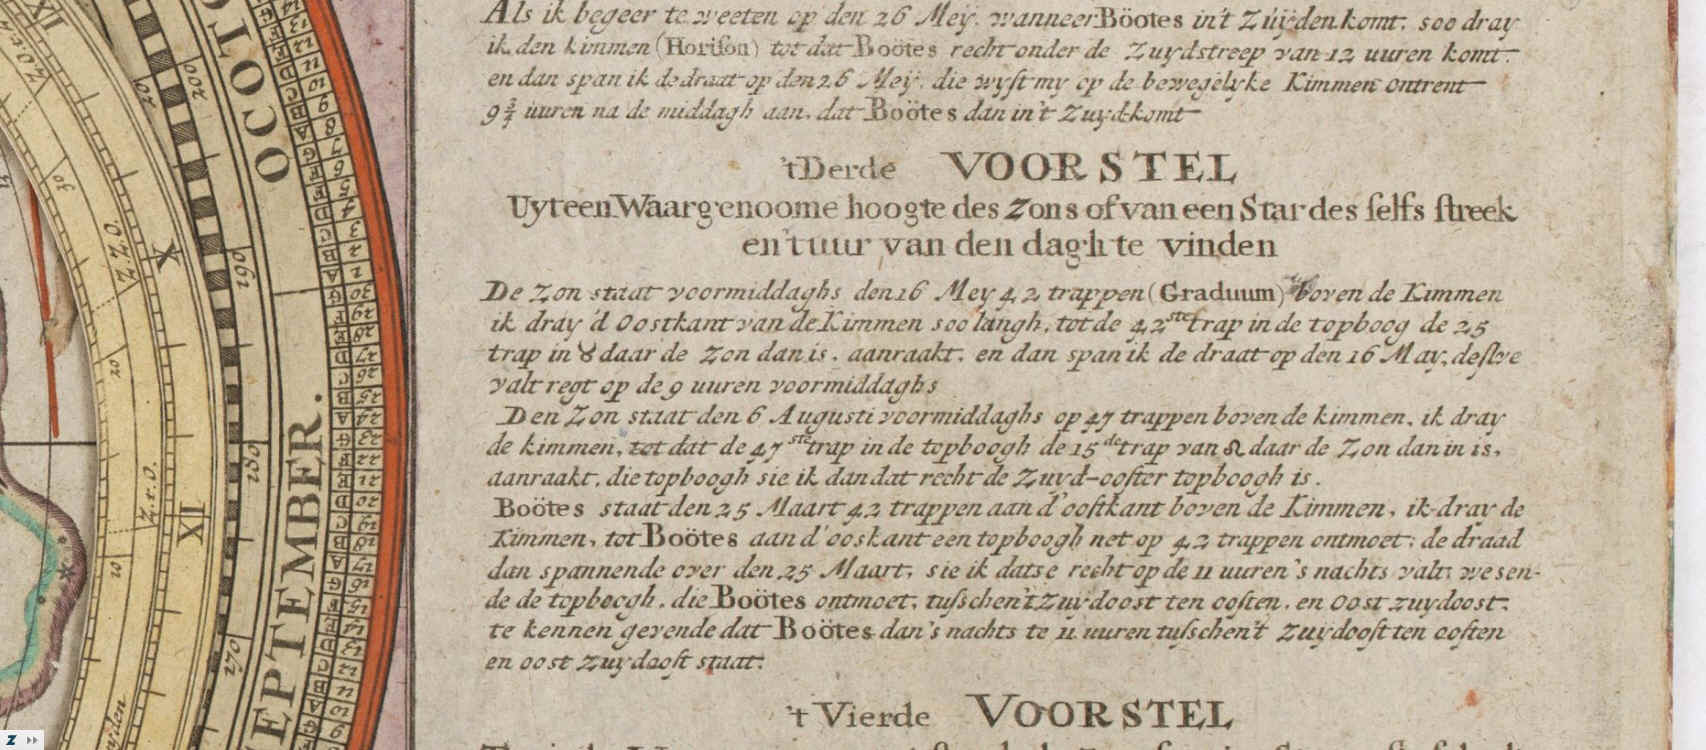 Als ik begeer te weeten op den 26 Mey. wanneer Böotes in't Züÿden komt. soo dray
ik den kimmen (Horison) tot dat Boötes recht onder de Zuydstreep van 12 uuren komt.
en dan span ik de draat op den 26 Meÿ. die wyst my op de bewegelyke Kimmen ontrent
9¾ uuren na de middagh aan. dat Boötes dan in't Zuyd komt
't Derde VOORSTEL
Uyt een Waargenoome hoogte des Zons of van een Star des selfs streek
en 't uur van den dagh te vinden
De Zon staat voormiddaghs den 16 Mey 42 trappen (Graduum) boven de Kimmen
ik dray 'd Oostkant van de Kimmen soo langh, tot de 42ste trap in de topboog de 25
trap in ♉ daar de Zon dan is. aanraakt. en dan span ik de draat op den 16 May. deslve
valt regt op de 9 uuren voormiddaghs
Den Zon staat den 6 Augusti voormiddaghs op 47 trappen boven de kimmen, ik dray
de kimmen, tot dat de 47ste trap in de topboogh de 15de trap van ♌ daar de Zon dan in is,
aanraakt. die topboogh sie ik dan dat recht de Zuyd-ooster topboogh is.
Boötes staat den 25 Maart 42 trappen aan d'oostkant boven de Kimmen, ik dray de
Kimmen, tot Boötes aan d'ooskant een topboogh net op 42 trappen ontmoet; de draad
dan spannende over den 25 Maart, sie ik datse recht op de 11 uuren 's nachts valt; wesen-
de de topboogh, die Boötes ontmoet, tusschen't Zuydoost ten oosten, en Oost zuydoost;
te kennen gevende dat Boötes dan 's nachts te 11 uuren tusschen't Zuydoost ten oosten
en oost Zuydoost staat.
't Vierde VOORSTEL
OCOTO
SEPTEMBER.
IX
X
XI
Z.Z.O.
Z.t.O.
200
190
180
170